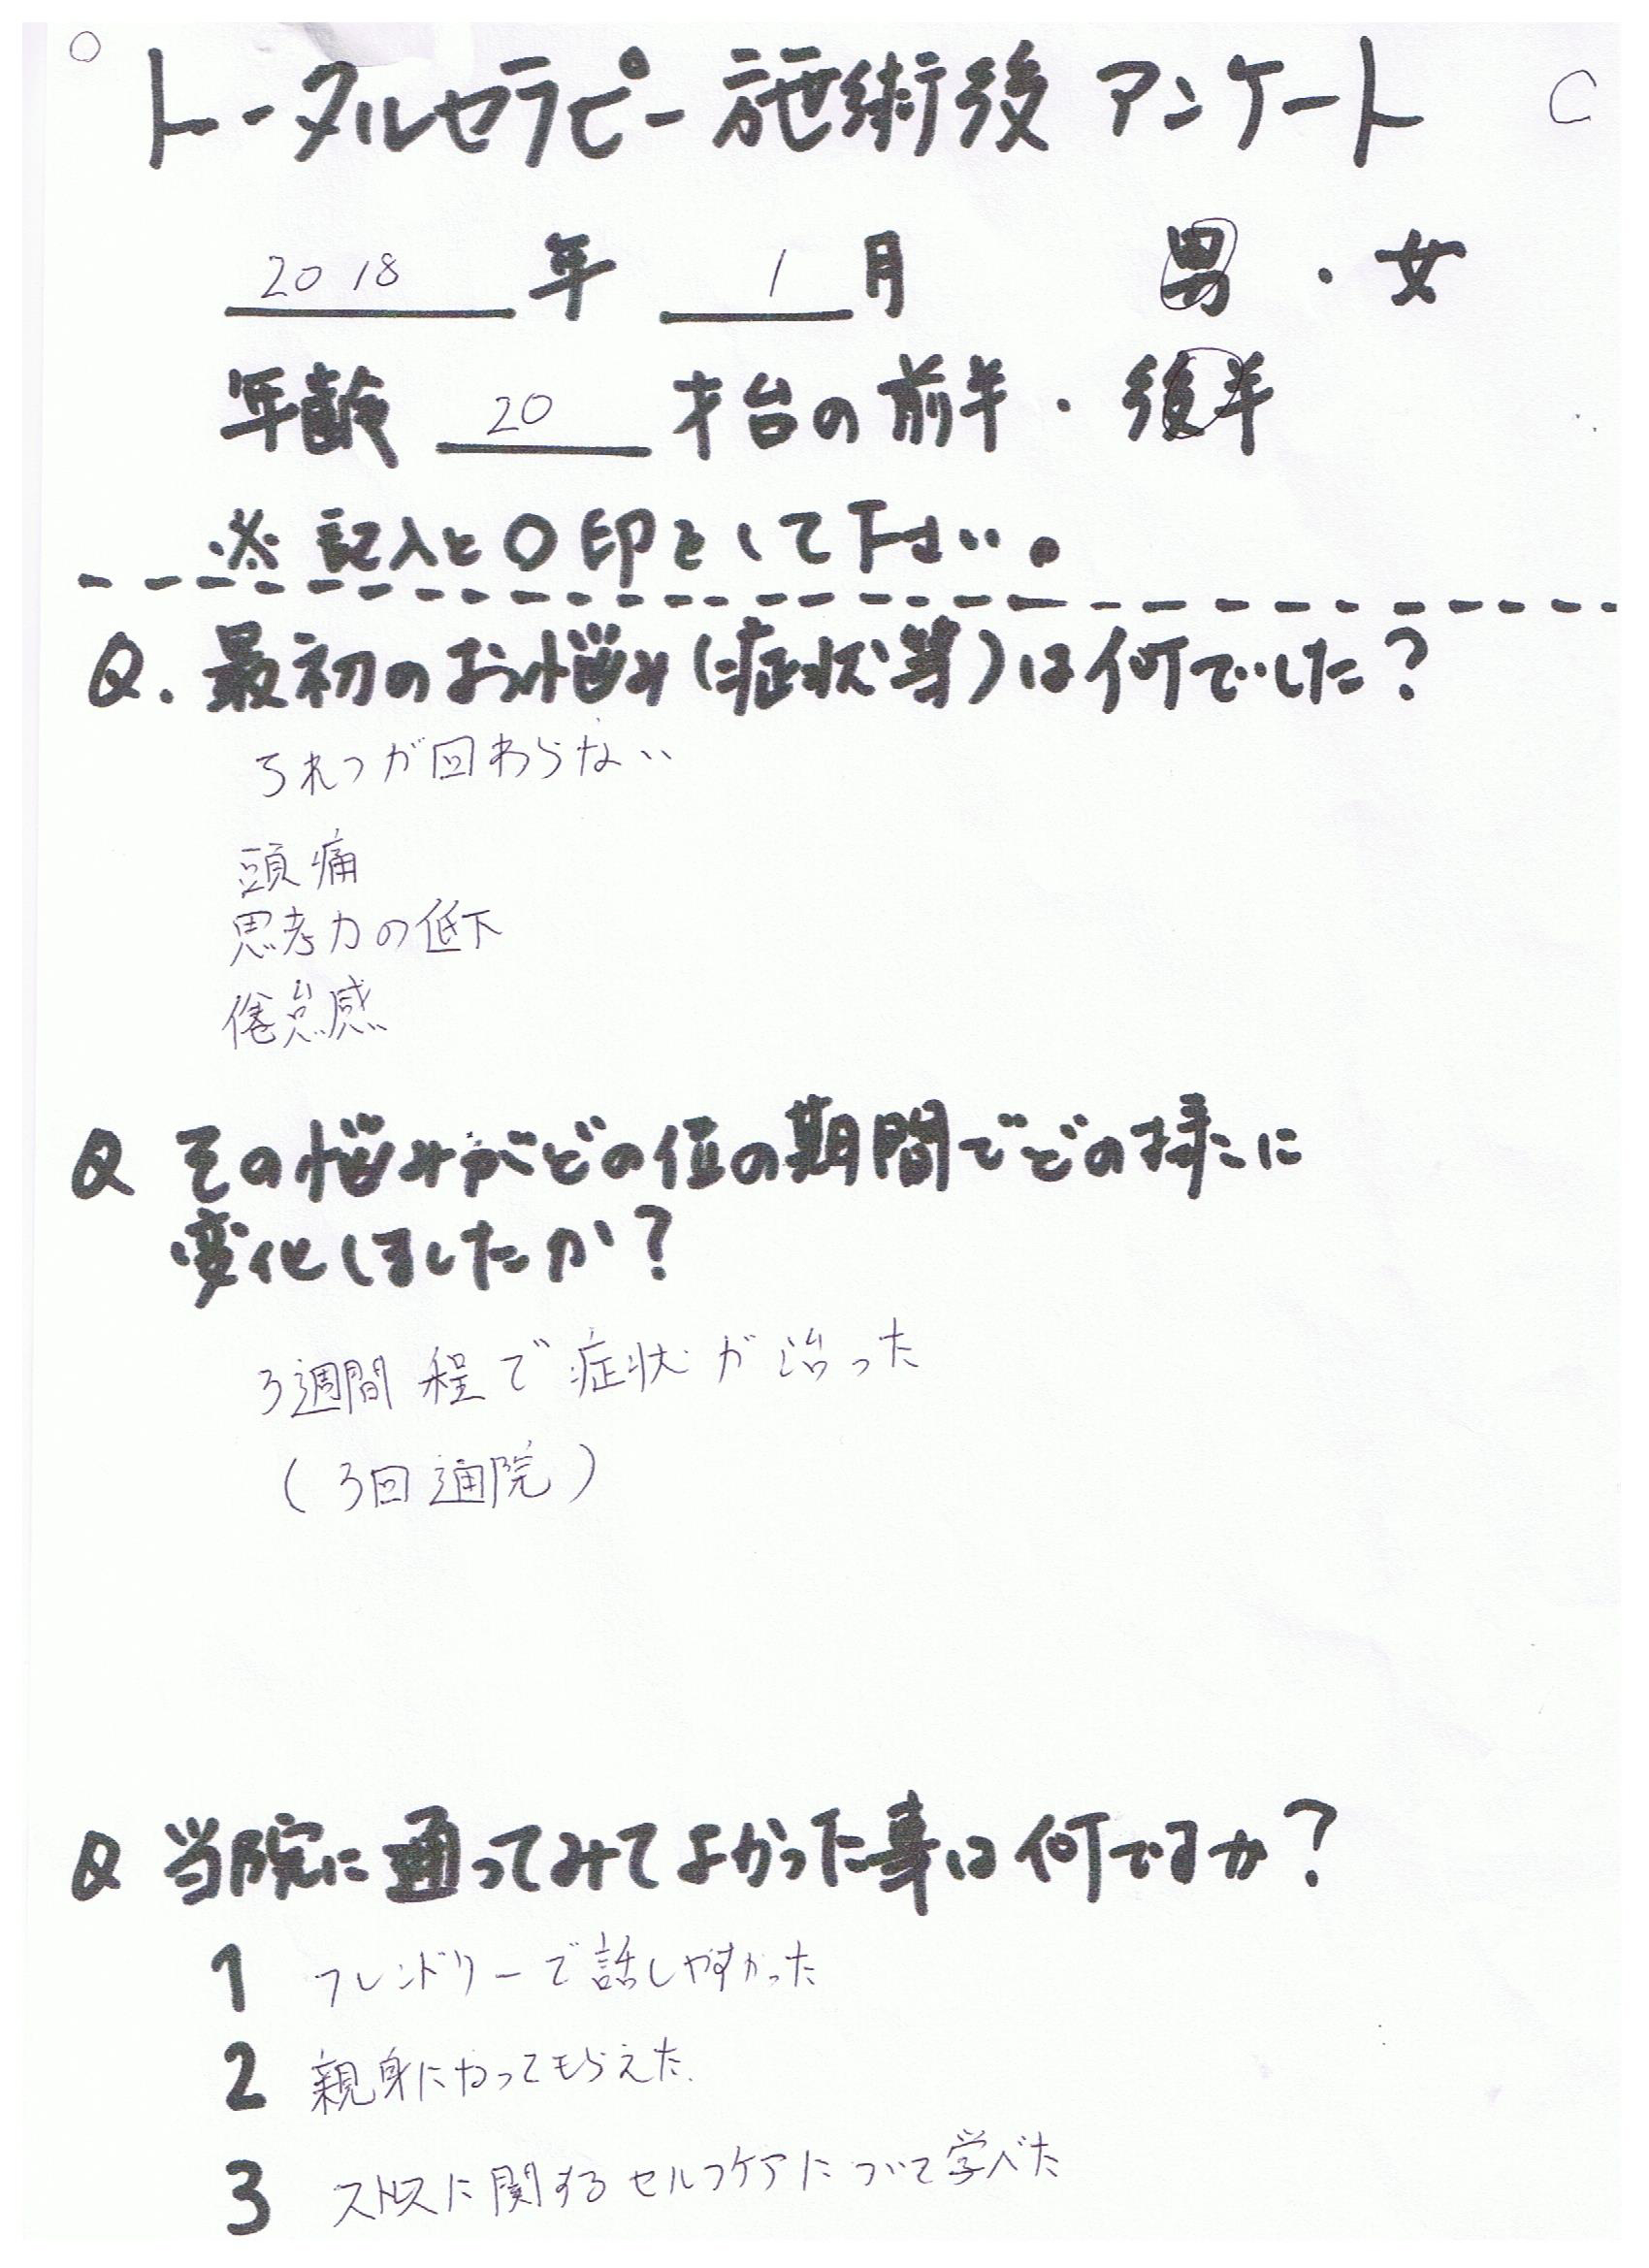 トータルセラピー施術後 アンケート C
2018 年 1 月 男・女
年齢 20 才台の前半・後半
※ 記入と〇印をして下さい。
Q. 最初のお悩み(症状等)は何でした?
ろれつが回わらない
頭痛
思考力の低下
倦怠感
Q その悩みがどの位の期間でどの様に
変化しましたか?
3週間程で症状が治った
(3回通院)
Q 当院に通ってみてよかった事は何ですか?
1 フレンドリーで話しやすかった
2 親身になってもらえた
3 ストレスに関するセルフケアについて学べた